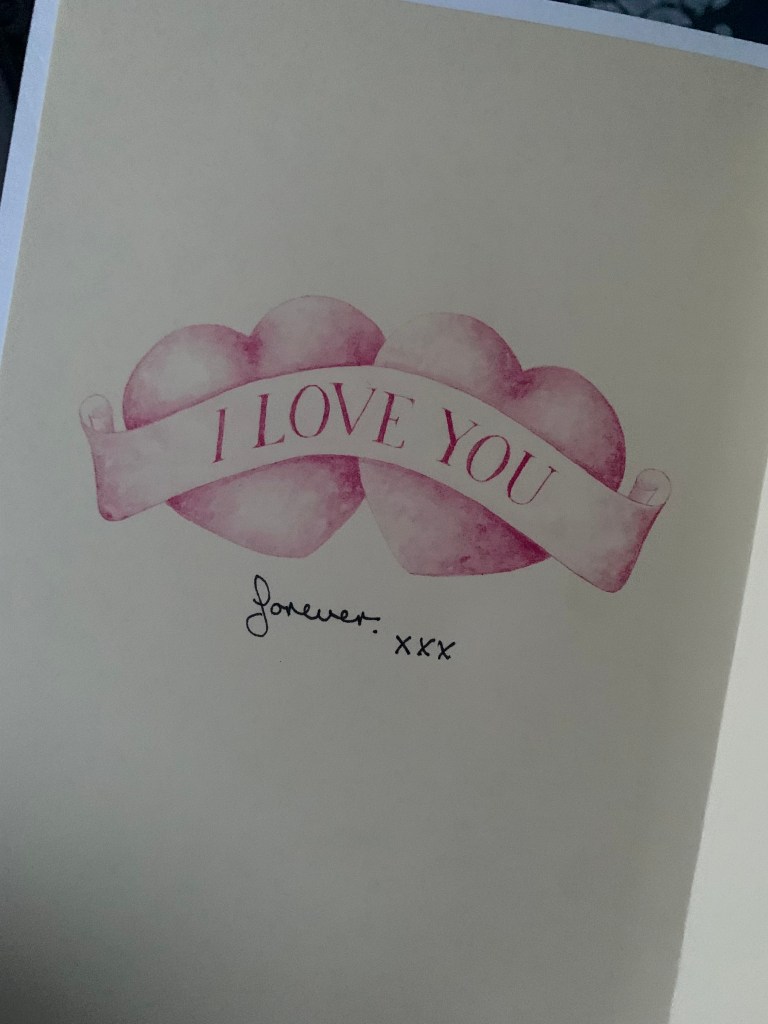 I LOVE YOU
forever.
xxx